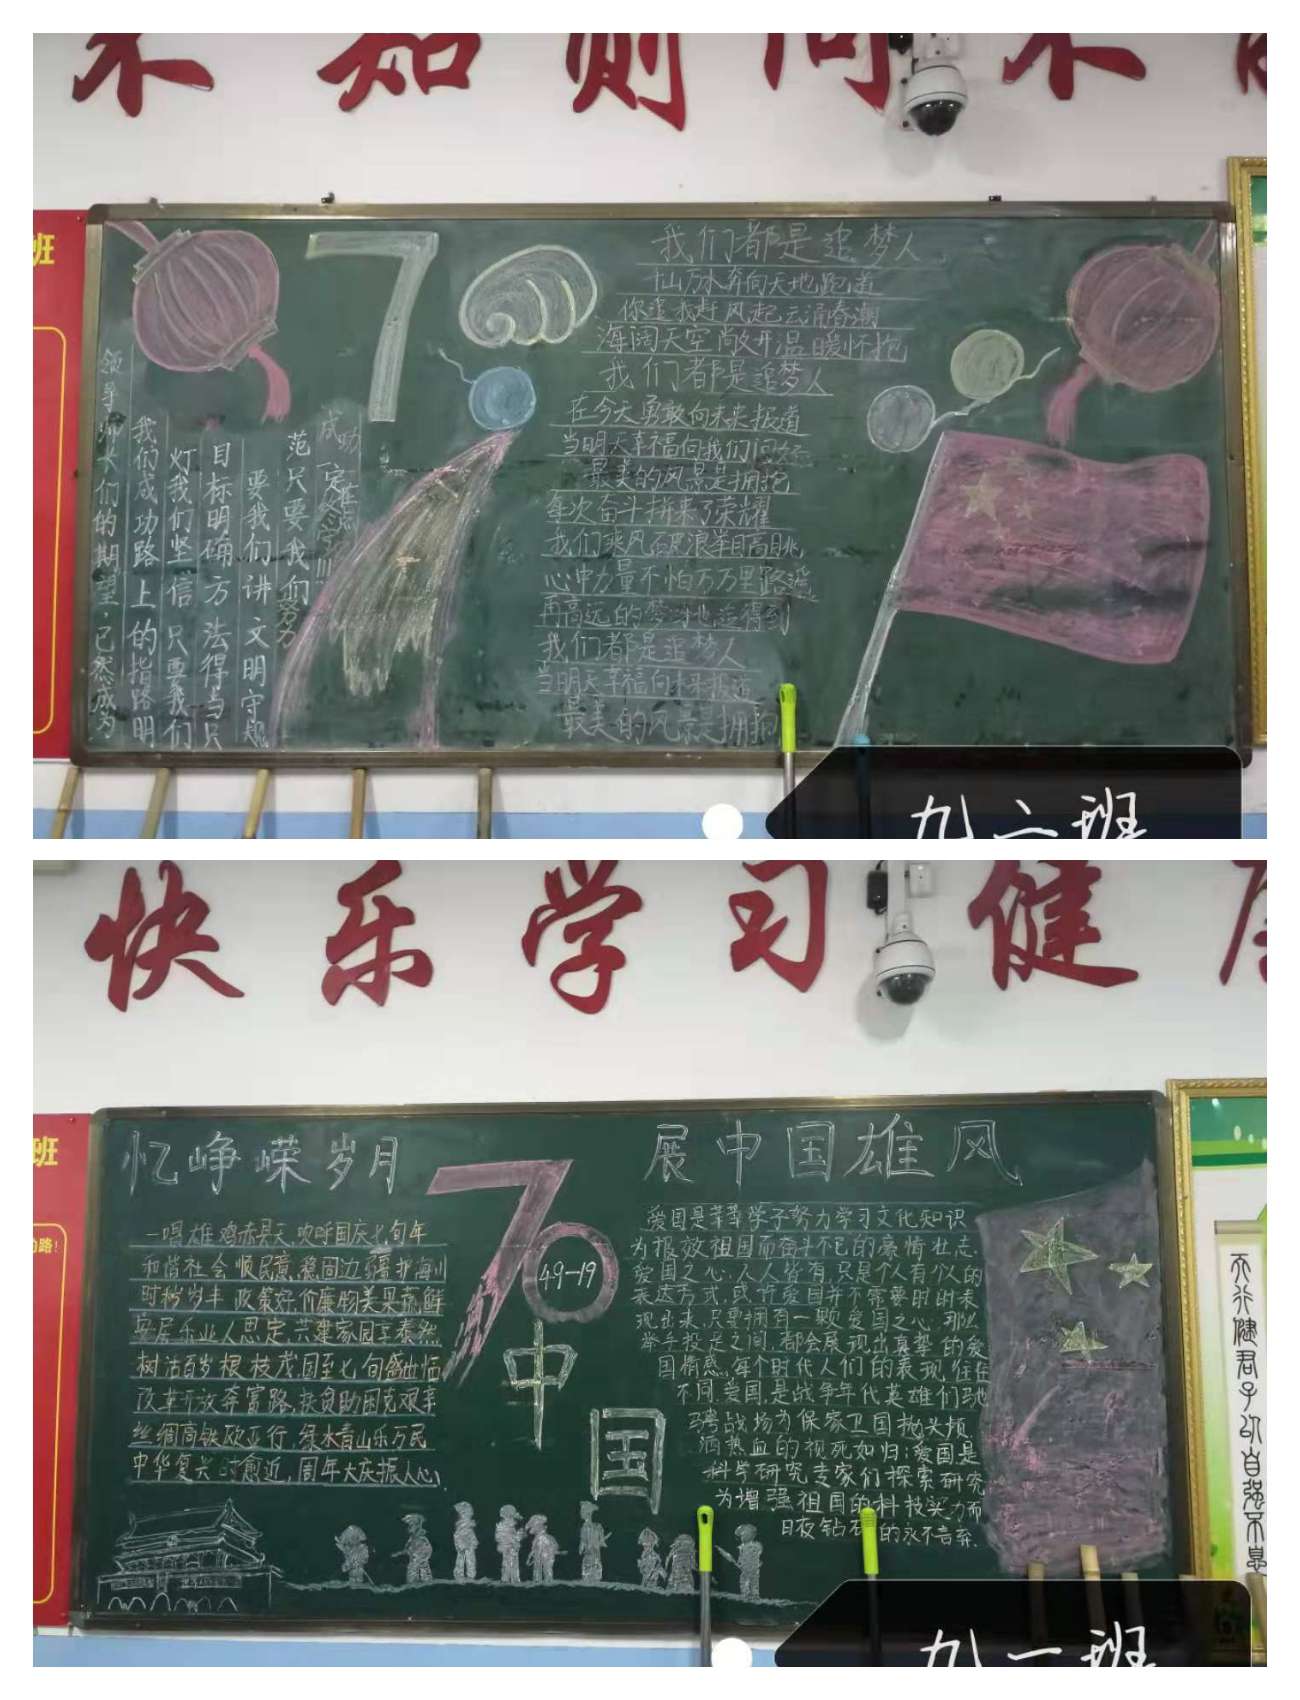 未知则问未
班
我们都是追梦人
千山万水奔向天地跑道
你追我赶风起云涌春潮
海阔天空敞开温暖怀抱
我们都是追梦人
在今天勇敢向未来报道
当明天幸福向我们问好
最美的风景是拥抱
每次奋斗拼来了荣耀
我们乘风破浪举目高眺
心中力量不怕万万里路遥
再高远的梦 也追得到
我们都是追梦人
当明天幸福向未来报道
最美的风景是拥抱
7
领导师长们的期望,已然成为
我们成功路上的指路明
灯我们坚信只要我们
目标明确方法得当只
要我们讲文明守规
范只要我们努力
成功一定在
!!!
九二班
快乐学习健
班
路!
忆峥嵘岁月
70
49-19
中国
展中国雄风
一唱雄鸡赤县天,欢呼国庆七旬年
和谐社会顺民意,稳固边疆护海川
时和岁丰政策好,价廉物美果蔬鲜
安居乐业人思定,共建家园主泰然
树沽百岁根枝茂,国至七旬盛世恬
改革开放奔富路,扶贫助困克艰辛
丝绸高铁欧亚行,绿水青山乐万民
中华复兴时愈近,周年大庆振人心
爱国是莘莘学子努力学习文化知识
为报效祖国而奋斗不已的豪情壮志.
爱国之心,人人皆有,只是个人有个人的
表达方式,或许爱国并不需要时时表
现出来,只要拥有一颗爱国之心,那么
举手投足之间,都会展现出真挚的爱
国情感,每个时代人们的表现往往
不同.爱国,是战争年代英雄们驰
骋战场为保家卫国抛头颅
洒热血的视死如归;爱国是
科学研究专家们探索研究
为增强祖国的科技实力而
日夜钻研的永不言弃.
天行健君子以自强不息
九一班